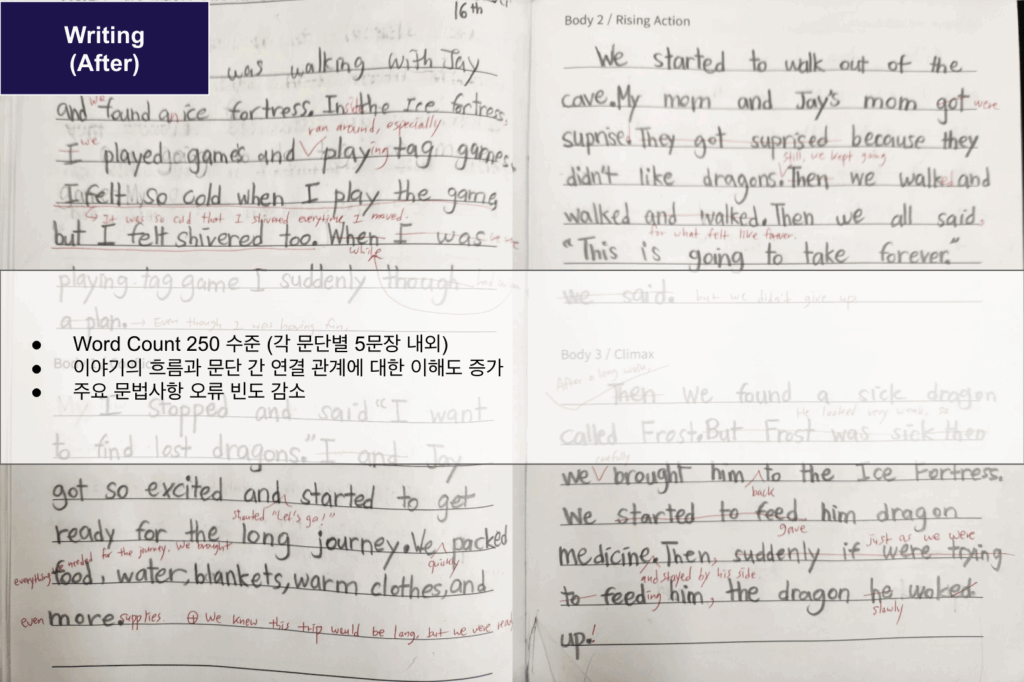 Writing
(After)
16th
was walking with Jay
and we found an ice fortress. Inside the Ice fortress,
ran around, especially
I we played games and playing tag games.
I felt so cold when I play the game,
It was so cold that I shivered everytime I moved.
but I felt shivered too. When I was
while
playing tag game I suddenly though
a plan. → Even though I was having fun,
Word Count 250 수준 (각 문단별 5문장 내외)
이야기의 흐름과 문단 간 연결 관계에 대한 이해도 증가
주요 문법사항 오류 빈도 감소
I stopped and said "I want
to find lost dragons." I and Jay
got so excited and started to get
shouted "Let's go!"
ready for the long journey. We packed
quickly
everything needed for the journey. We brought
food, water, blankets, warm clothes, and
even more. supplies. ⊕ We knew this trip would be long, but we were
Body 2 / Rising Action
We started to walk out of the
cave. My mom and Jay's mom got were
suprise. They got suprised because they
still, we kept going
didn't like dragons. Then we walked and
walked and walked. Then we all said.
for what felt like forever.
"This is going to take forever."
we said. but we didn't give up
Body 3 / Climax
After a long walk,
Then we found a sick dragon
He looked very weak, so
called Frost. But Frost was sick then
carefully
we brought him to the Ice Fortress.
back
We started to feed him dragon
gave just as we were
medicine. Then, suddenly if were trying
and stayed by his side.
to feeding him, the dragon he woked
slowly
up.!